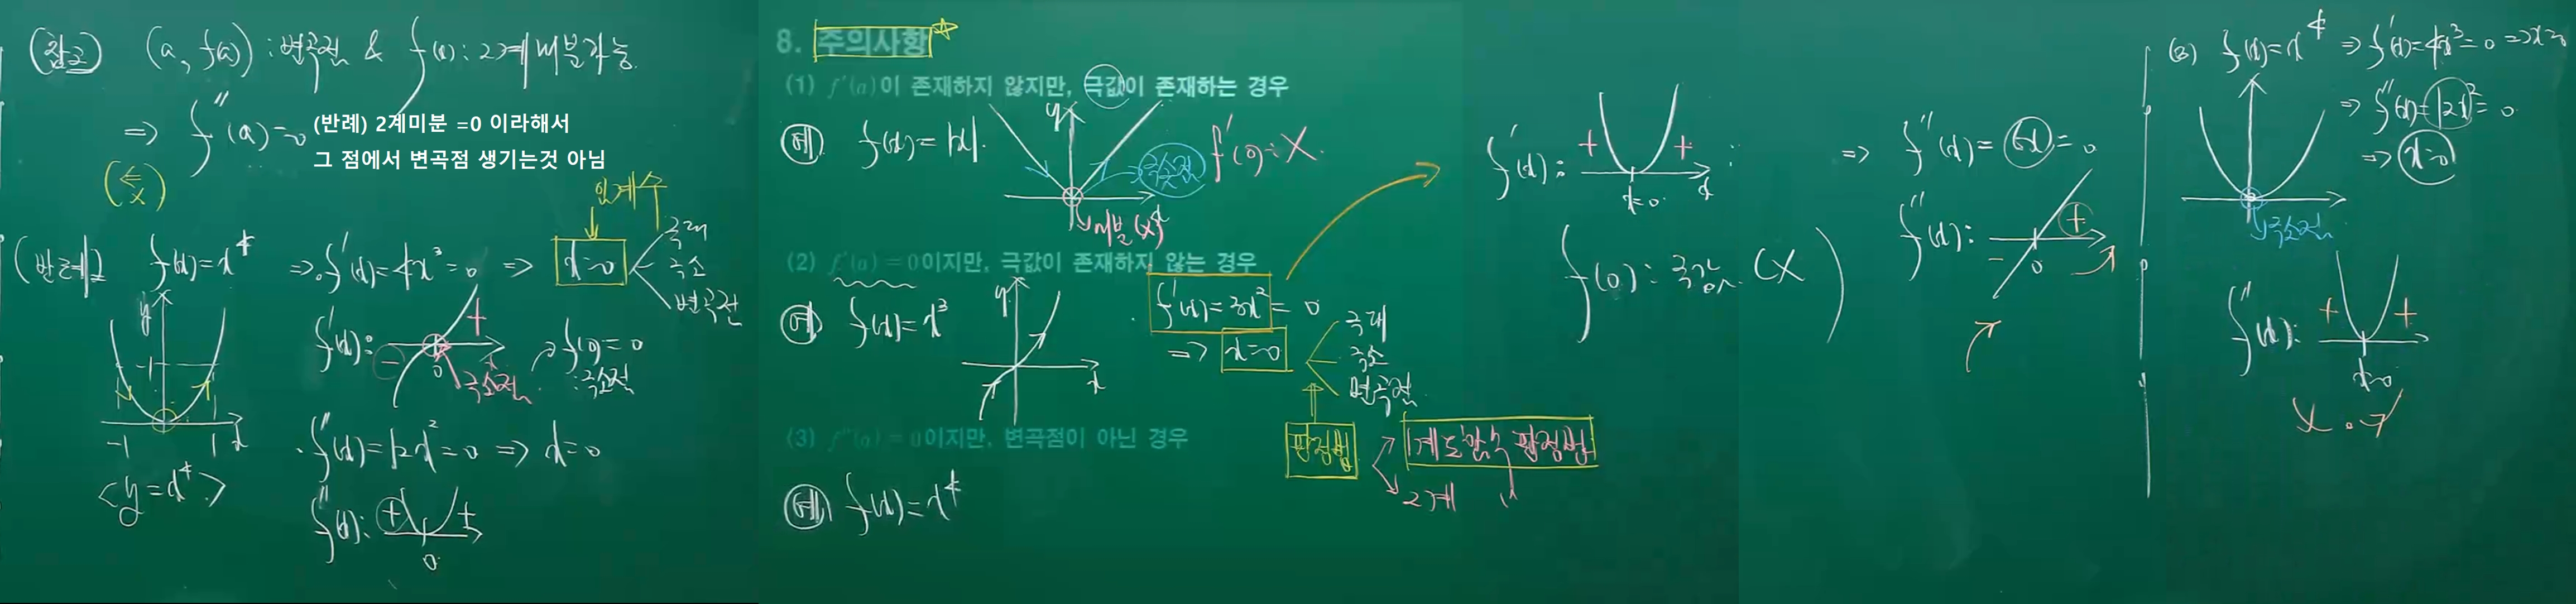 (참고) (a, f(a)) : 변곡점 & f(x) : 2계 미분가능.
⇒ f''(a)=0
(반례) 2계미분 =0 이라해서
그 점에서 변곡점 생기는것 아님
(⇐ x)
임계수
(반례) f(x)=x⁴ ⇒ f'(x)=4x³=0 ⇒ x=0
극대
극소
변곡점
y
1
-1 1 x
<y=x⁴>
f'(x): - 0 + x
극소점
f(0)=0
: 극소점
f''(x)=12x²=0 ⇒ x=0
f''(x): + +
0
8. 주의사항
(1) f'(a)이 존재하지 않지만, 극값이 존재하는 경우
예) f(x)=|x|.
y
극솟점
f'(0): X.
미분(X)
x
(2) f'(a) = 0이지만, 극값이 존재하지 않는 경우
예) f(x)=x³
y
x
f'(x)=3x²=0
⇒ x=0
극대
극소
변곡점.
판정법
1계도함수 판정법
2계 〃
(3) f''(a) = 0이지만, 변곡점이 아닌 경우
예) f(x)=x⁴
f'(x): + +
x=0 x
f(0): 극값. (X)
⇒ f''(x)=6x=0
f''(x): - 0 +
(3) f(x)=x⁴ ⇒ f'(x)=4x³=0 ⇒ x=0
⇒ f''(x)=12x²=0
⇒ x=0
극소점
f''(x): + +
x=0